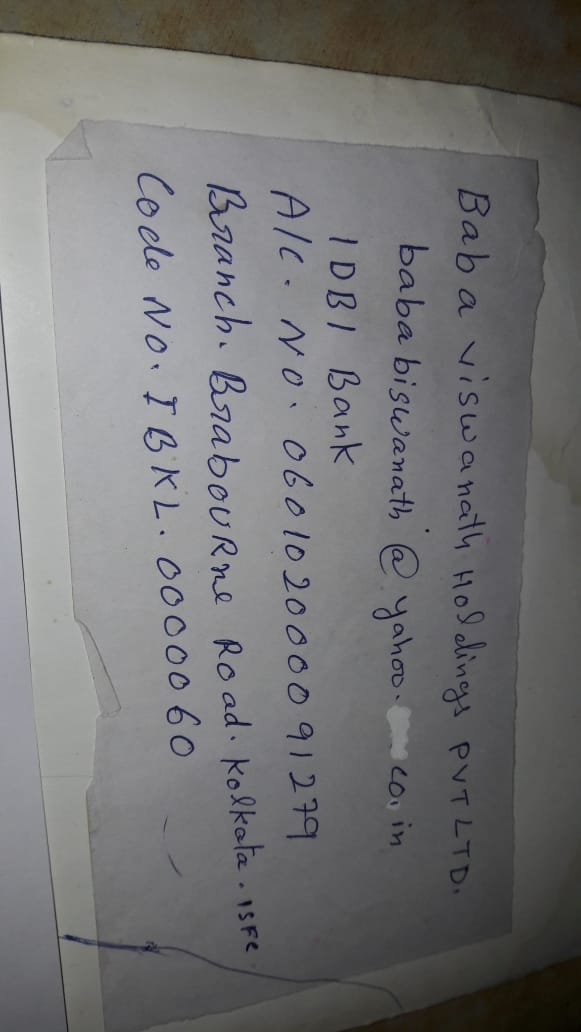 Baba viswanath Holdings PVT LTD.
bababiswanath @ yahoo. co. in
IDBI Bank
A/C. NO. 060102000091279
Branch. BrabouRne Road. Kolkata. ISFC
Code NO. IBKL. 0000060